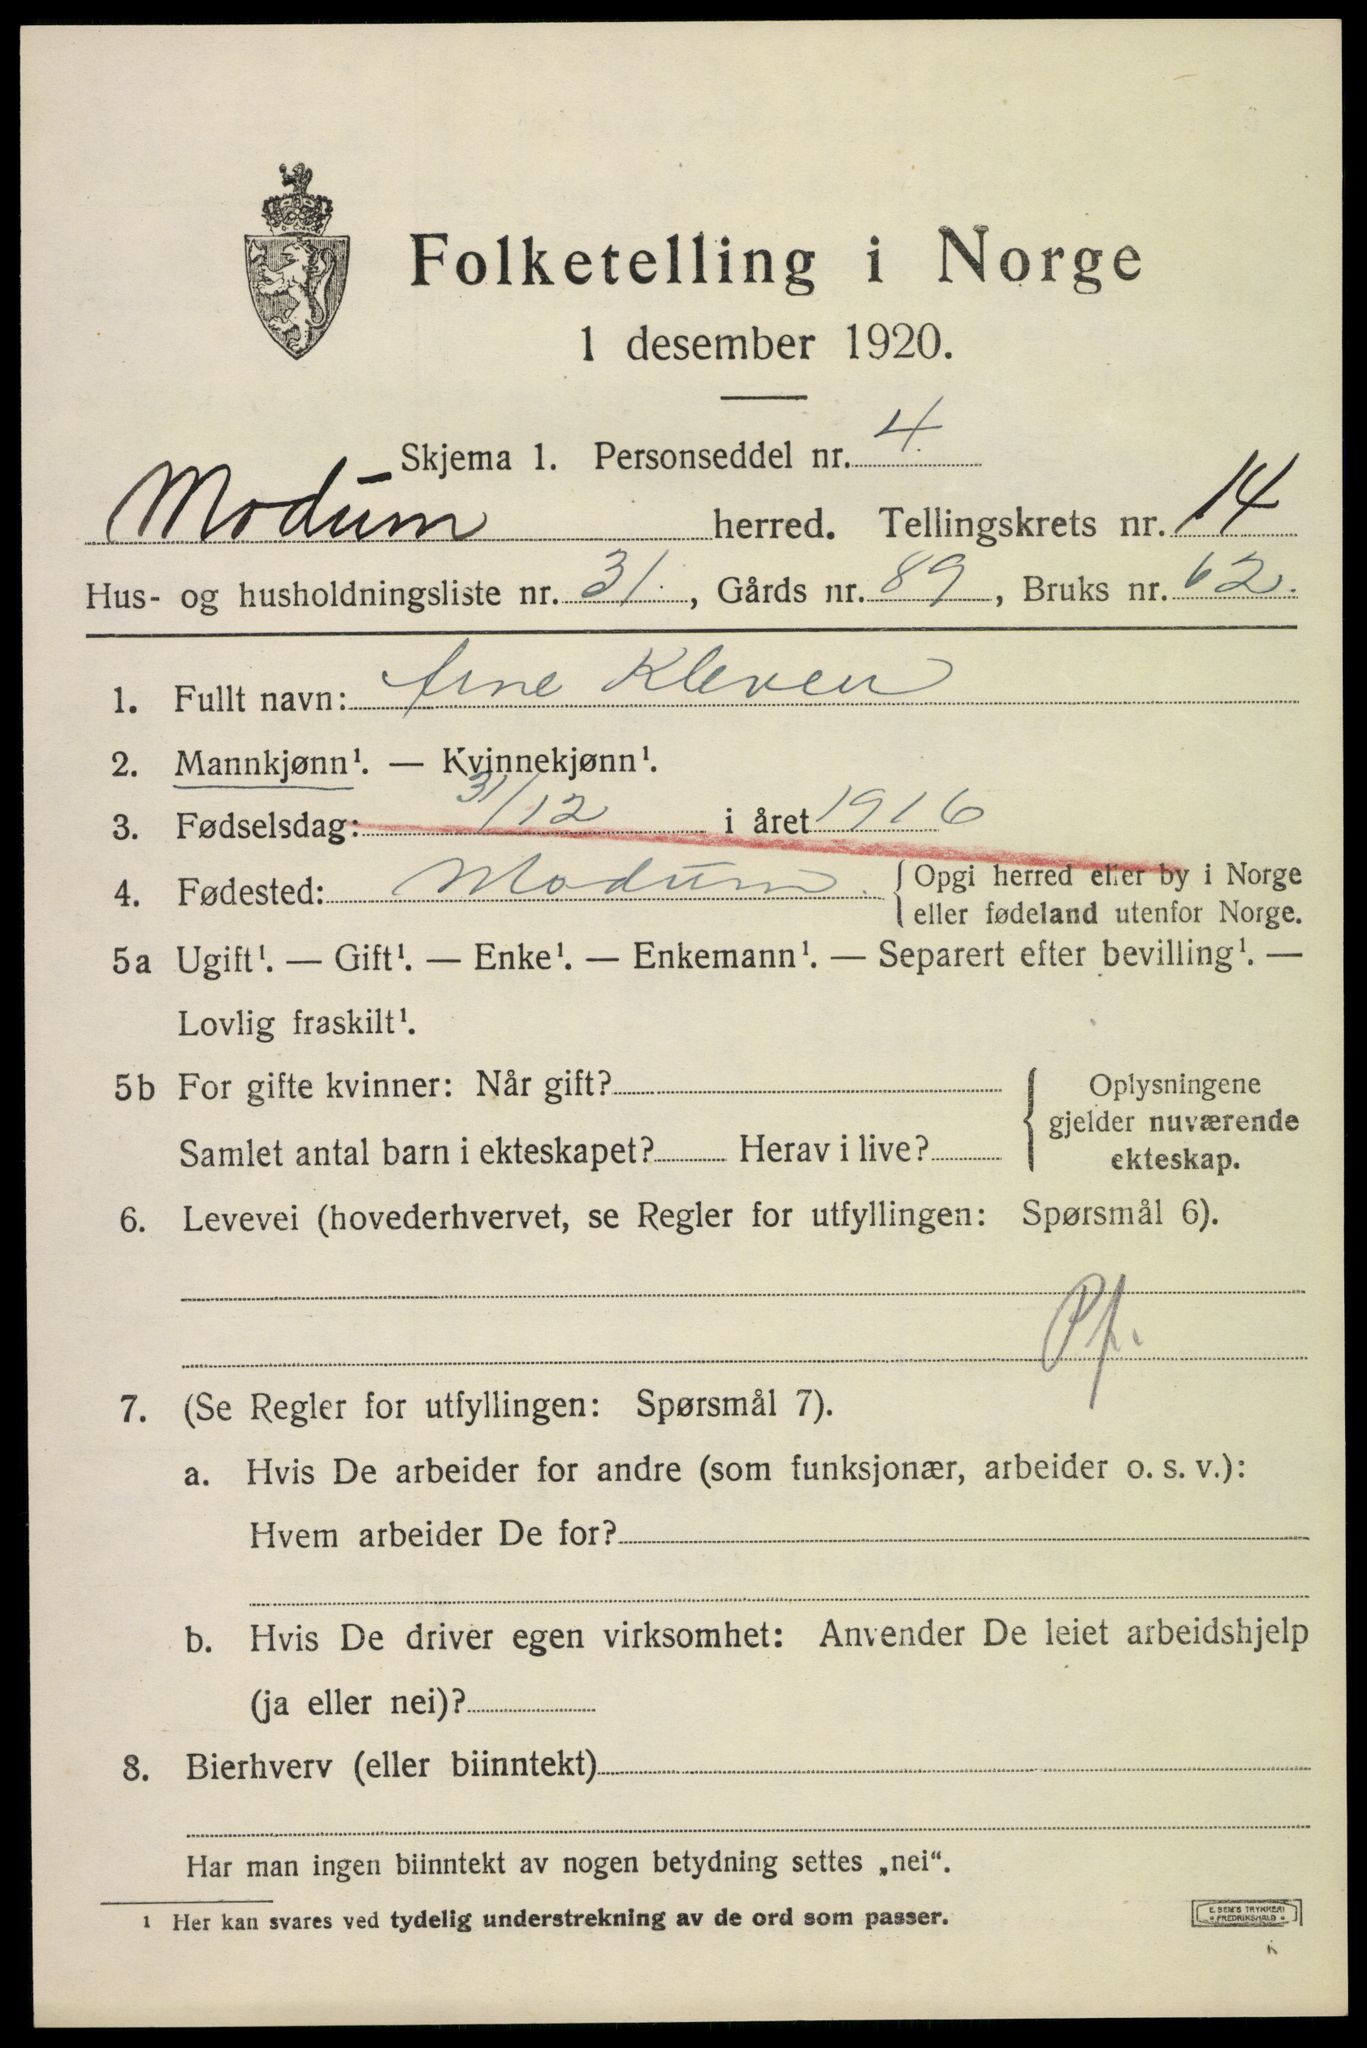 Folketelling i Norge
1 desember 1920.
Skjema 1. Personseddel nr. 4.
Modum herred. Tellingskrets nr. 14
Hus- og husholdningsliste nr. 31., Gårds nr. 89, Bruks nr. 62.
1. Fullt navn: Arne Kleven
2. Mannkjønn¹. — Kvinnekjønn¹.
3. Fødselsdag: 31/12 i året 1916
4. Fødested: Modum. { Opgi herred eller by i Norge
eller fødeland utenfor Norge.
5a Ugift¹. — Gift¹. — Enke¹. — Enkemann¹. — Separert efter bevilling¹. —
Lovlig fraskilt¹.
5b For gifte kvinner: Når gift? { Oplysningene
gjelder nuværende
Samlet antal barn i ekteskapet? Herav i live? ekteskap.
6. Levevei (hovederhvervet, se Regler for utfyllingen: Spørsmål 6).
Pf.
7. (Se Regler for utfyllingen: Spørsmål 7).
a. Hvis De arbeider for andre (som funksjonær, arbeider o. s. v.):
Hvem arbeider De for?
b. Hvis De driver egen virksomhet: Anvender De leiet arbeidshjelp
(ja eller nei)?
8. Bierhverv (eller biinntekt)
Har man ingen biinntekt av nogen betydning settes „nei“.
¹ Her kan svares ved tydelig understrekning av de ord som passer.
E. SEM'S TRYKKERI
FREDRIKSHALD